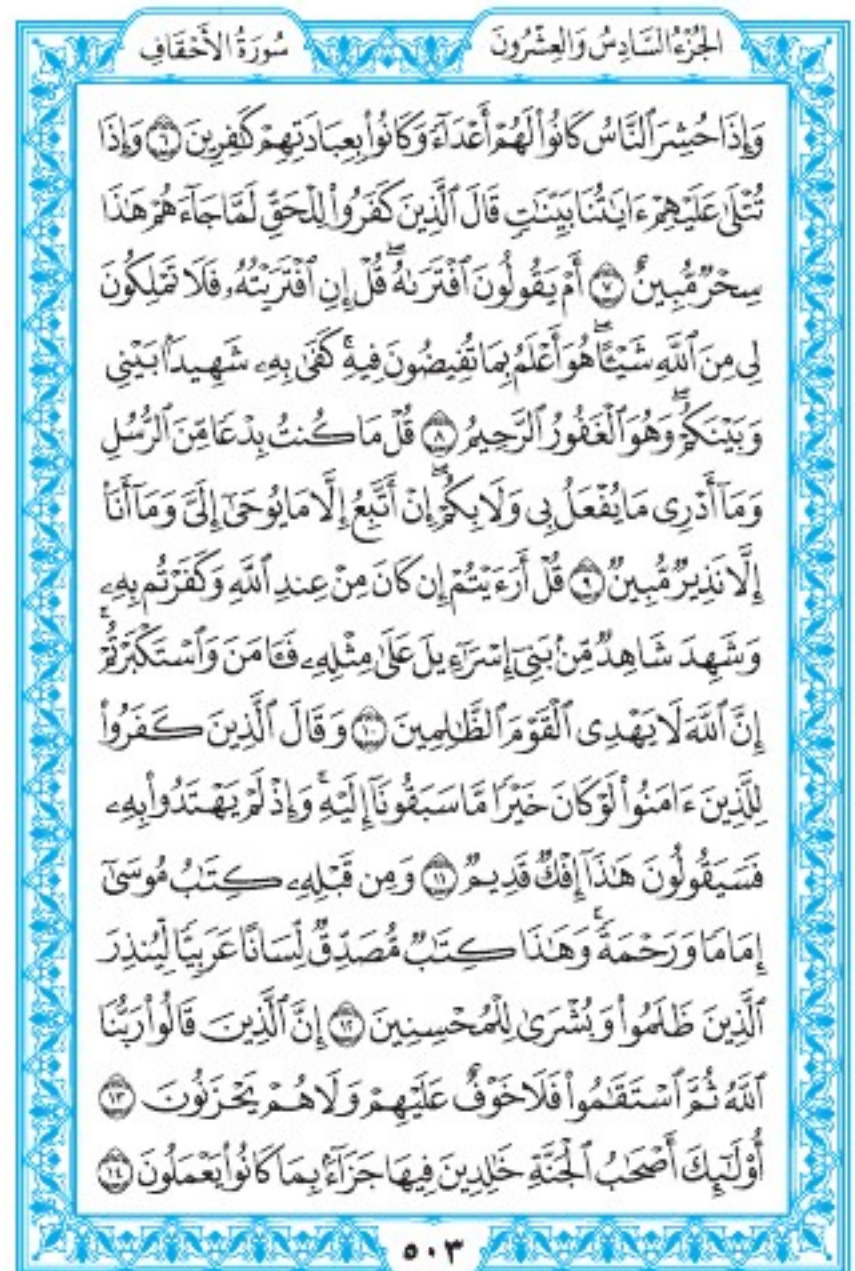 الجُزْءُ السَّادِسُ وَالعِشْرُونَ
سُورَةُ الأَحْقَافِ
وَإِذَا حُشِرَ ٱلنَّاسُ كَانُوا۟ لَهُمْ أَعْدَآءً وَكَانُوا۟ بِعِبَادَتِهِمْ كَٰفِرِينَ ٦ وَإِذَا
تُتْلَىٰ عَلَيْهِمْ ءَايَٰتُنَا بَيِّنَٰتٍ قَالَ ٱلَّذِينَ كَفَرُوا۟ لِلْحَقِّ لَمَّا جَآءَهُمْ هَٰذَا
سِحْرٌ مُّبِينٌ ٧ أَمْ يَقُولُونَ ٱفْتَرَىٰهُ ۖ قُلْ إِنِ ٱفْتَرَيْتُهُۥ فَلَا تَمْلِكُونَ
لِى مِنَ ٱللَّهِ شَيْـًٔا ۖ هُوَ أَعْلَمُ بِمَا تُفِيضُونَ فِيهِ ۖ كَفَىٰ بِهِۦ شَهِيدًۢا بَيْنِى
وَبَيْنَكُمْ ۖ وَهُوَ ٱلْغَفُورُ ٱلرَّحِيمُ ٨ قُلْ مَا كُنتُ بِدْعًا مِّنَ ٱلرُّسُلِ
وَمَآ أَدْرِى مَا يُفْعَلُ بِى وَلَا بِكُمْ ۖ إِنْ أَتَّبِعُ إِلَّا مَا يُوحَىٰٓ إِلَىَّ وَمَآ أَنَا۠
إِلَّا نَذِيرٌ مُّبِينٌ ٩ قُلْ أَرَءَيْتُمْ إِن كَانَ مِنْ عِندِ ٱللَّهِ وَكَفَرْتُم بِهِۦ
وَشَهِدَ شَاهِدٌ مِّنۢ بَنِىٓ إِسْرَٰٓءِيلَ عَلَىٰ مِثْلِهِۦ فَـَٔامَنَ وَٱسْتَكْبَرْتُمْ ۚ
إِنَّ ٱللَّهَ لَا يَهْدِى ٱلْقَوْمَ ٱلظَّٰلِمِينَ ١٠ وَقَالَ ٱلَّذِينَ كَفَرُوا۟
لِلَّذِينَ ءَامَنُوا۟ لَوْ كَانَ خَيْرًا مَّا سَبَقُونَآ إِلَيْهِ ۚ وَإِذْ لَمْ يَهْتَدُوا۟ بِهِۦ
فَسَيَقُولُونَ هَٰذَآ إِفْكٌ قَدِيمٌ ١١ وَمِن قَبْلِهِۦ كِتَٰبُ مُوسَىٰٓ
إِمَامًا وَرَحْمَةً ۚ وَهَٰذَا كِتَٰبٌ مُّصَدِّقٌ لِّسَانًا عَرَبِيًّا لِّيُنذِرَ
ٱلَّذِينَ ظَلَمُوا۟ وَبُشْرَىٰ لِلْمُحْسِنِينَ ١٢ إِنَّ ٱلَّذِينَ قَالُوا۟ رَبُّنَا
ٱللَّهُ ثُمَّ ٱسْتَقَٰمُوا۟ فَلَا خَوْفٌ عَلَيْهِمْ وَلَا هُمْ يَحْزَنُونَ ١٣
أُو۟لَٰٓئِكَ أَصْحَٰبُ ٱلْجَنَّةِ خَٰلِدِينَ فِيهَا جَزَآءًۢ بِمَا كَانُوا۟ يَعْمَلُونَ ١٤
٥٠٣